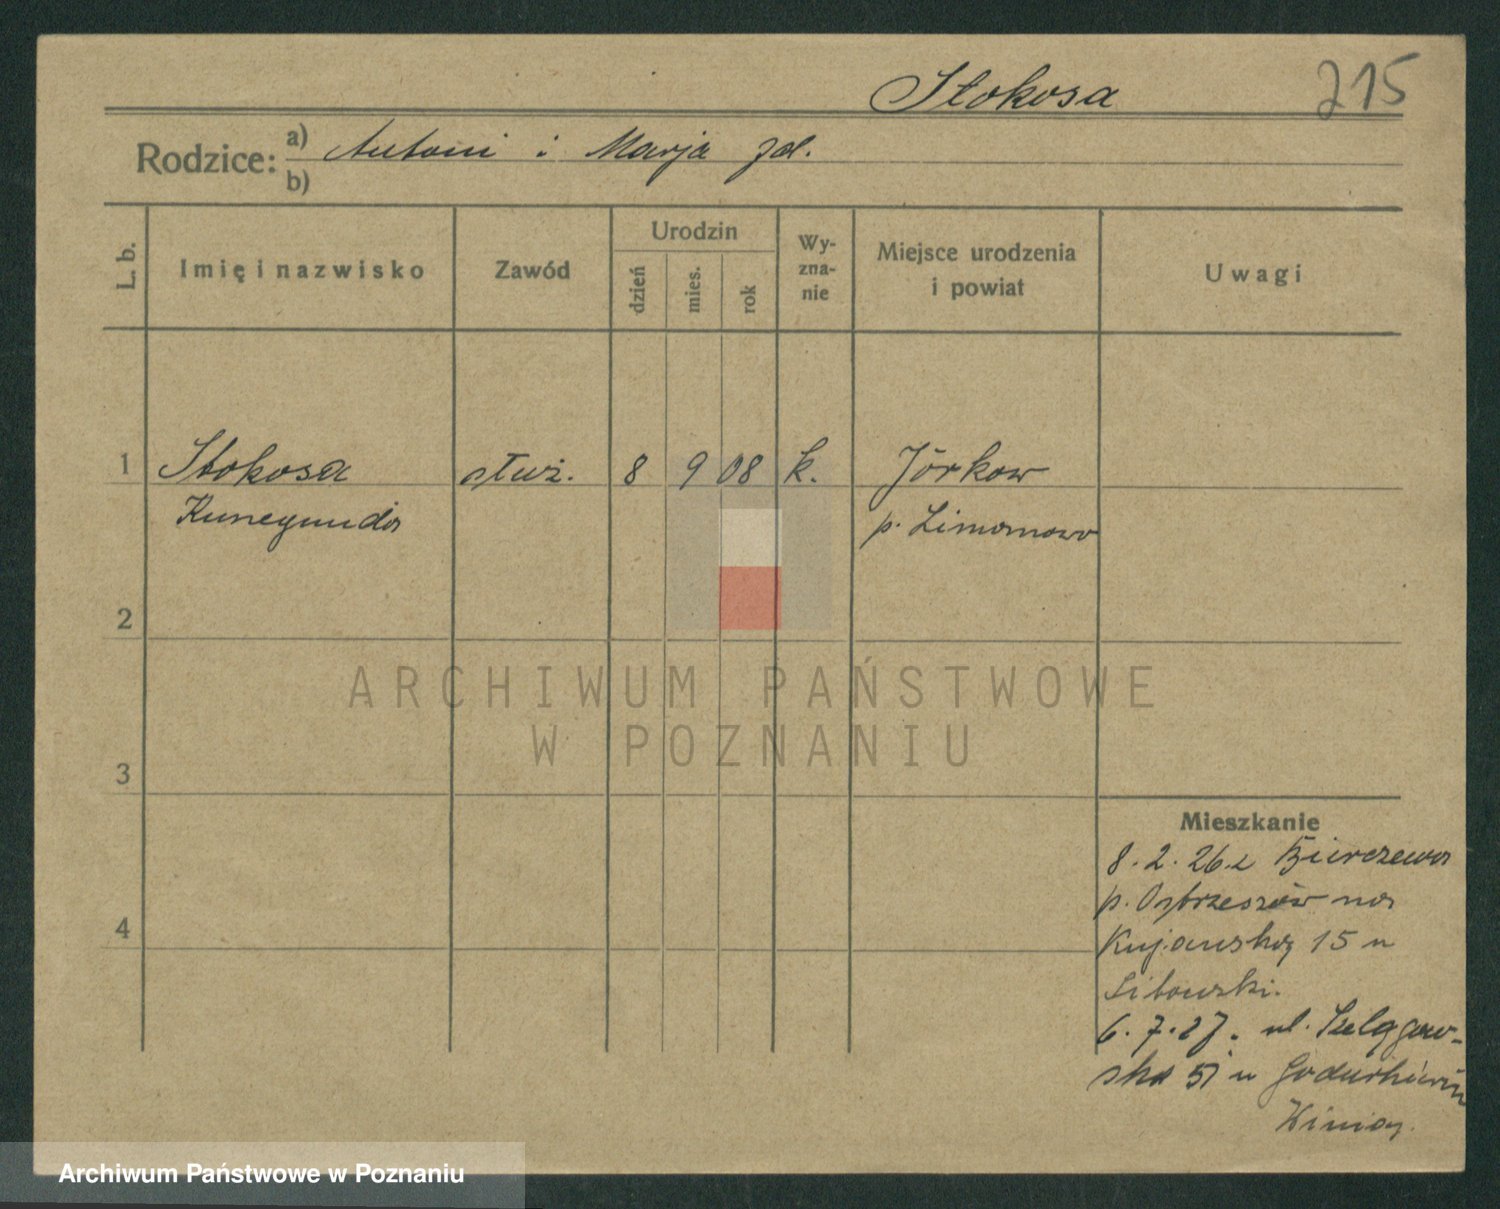 Stokosa 215
Rodzice: a) Antoni i Marja
b)
L. b. Imię i nazwisko Zawód Urodzin dzień mies. rok Wyznanie Miejsce urodzenia i powiat Uwagi
1 Stokosa służ. 8 9 08 k. Jörkow
Kunegunda p. Limanowa
2
ARCHIWUM PAŃSTWOWE
W POZNANIU
3
Mieszkanie
8. 2. 26. z
4 p. Ostrzeszów na
Kujawską 15 u
Litowski.
6. 7. 27. ul. Szelągow-
ska 51 u
Archiwum Państwowe w Poznaniu